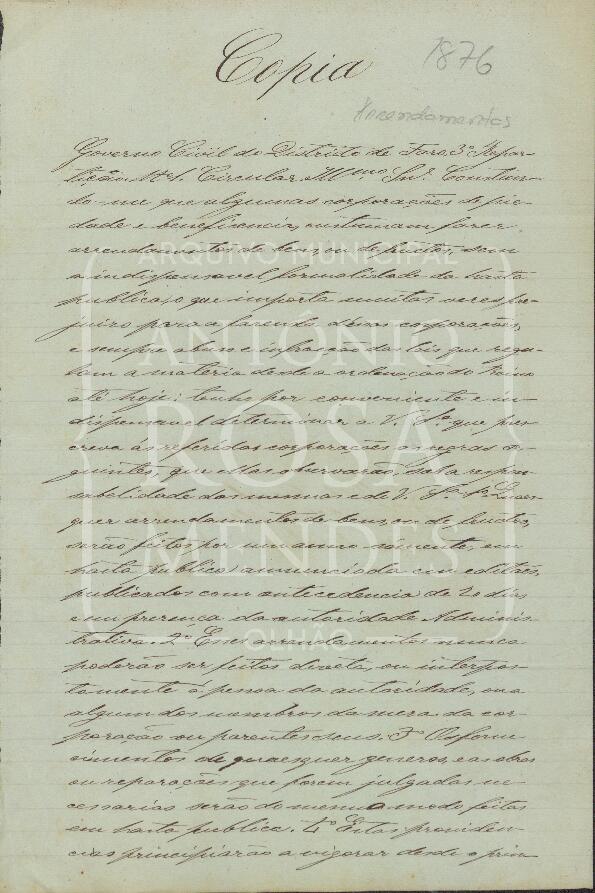 Copia
1876
Arrendamentos
Governo Civil do Districto de Faro. 3ª Repar-
tição. Nº 1. Circular. Illmo Snr. Constan-
do-me que algumas corporações de pie-
dade e beneficencia, costumam fazer
arrendamentos de bens ou de fructos, sem
a indispensavel formalidade da hasta
publica, o que importa muitas vezes pre-
juizo para a fazenda dessas corporações,
e sempre abuso e infracção das leis que regu-
lam a materia desde a ordenação do Reino
até hoje: tenho por conveniente e in-
dispensavel determinar a V. Sª que pres-
creva ás referidas corporações as regras se-
guintes, que ellas observarão, sob a respon-
sabelidade das mesmas e de V. Sª 1ª Quaes-
quer arrendamentos de bens, ou de fructos,
serão feitos por um anno sómente, em
hasta publica, annunciada em editaes,
publicados com antecedencia de 20 dias
e em presença da autoridade Adminis-
trativa. 2ª Esses arrendamentos nunca
poderão ser feitos directa, ou interpos-
tamente á pessoa da autoridade, ou a
algum dos membros da meza da cor-
poração ou parentes seus. 3ª Os forne-
cimentos de quaesquer generos, e as obras
ou reparações que forem julgadas ne-
cessarias serão do mesmo modo feitos
em hasta publica. 4ª Estas providen-
cias principiarão a vigorar desde o prin-
ARQUIVO MUNICIPAL
ANTÓNIO
ROSA
MENDES
OLHÃO